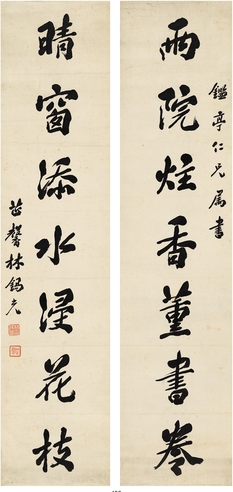 雨院炷香薰書卷
鑑亭仁兄屬書
晴窗添水浸花枝
芷馨林錫光